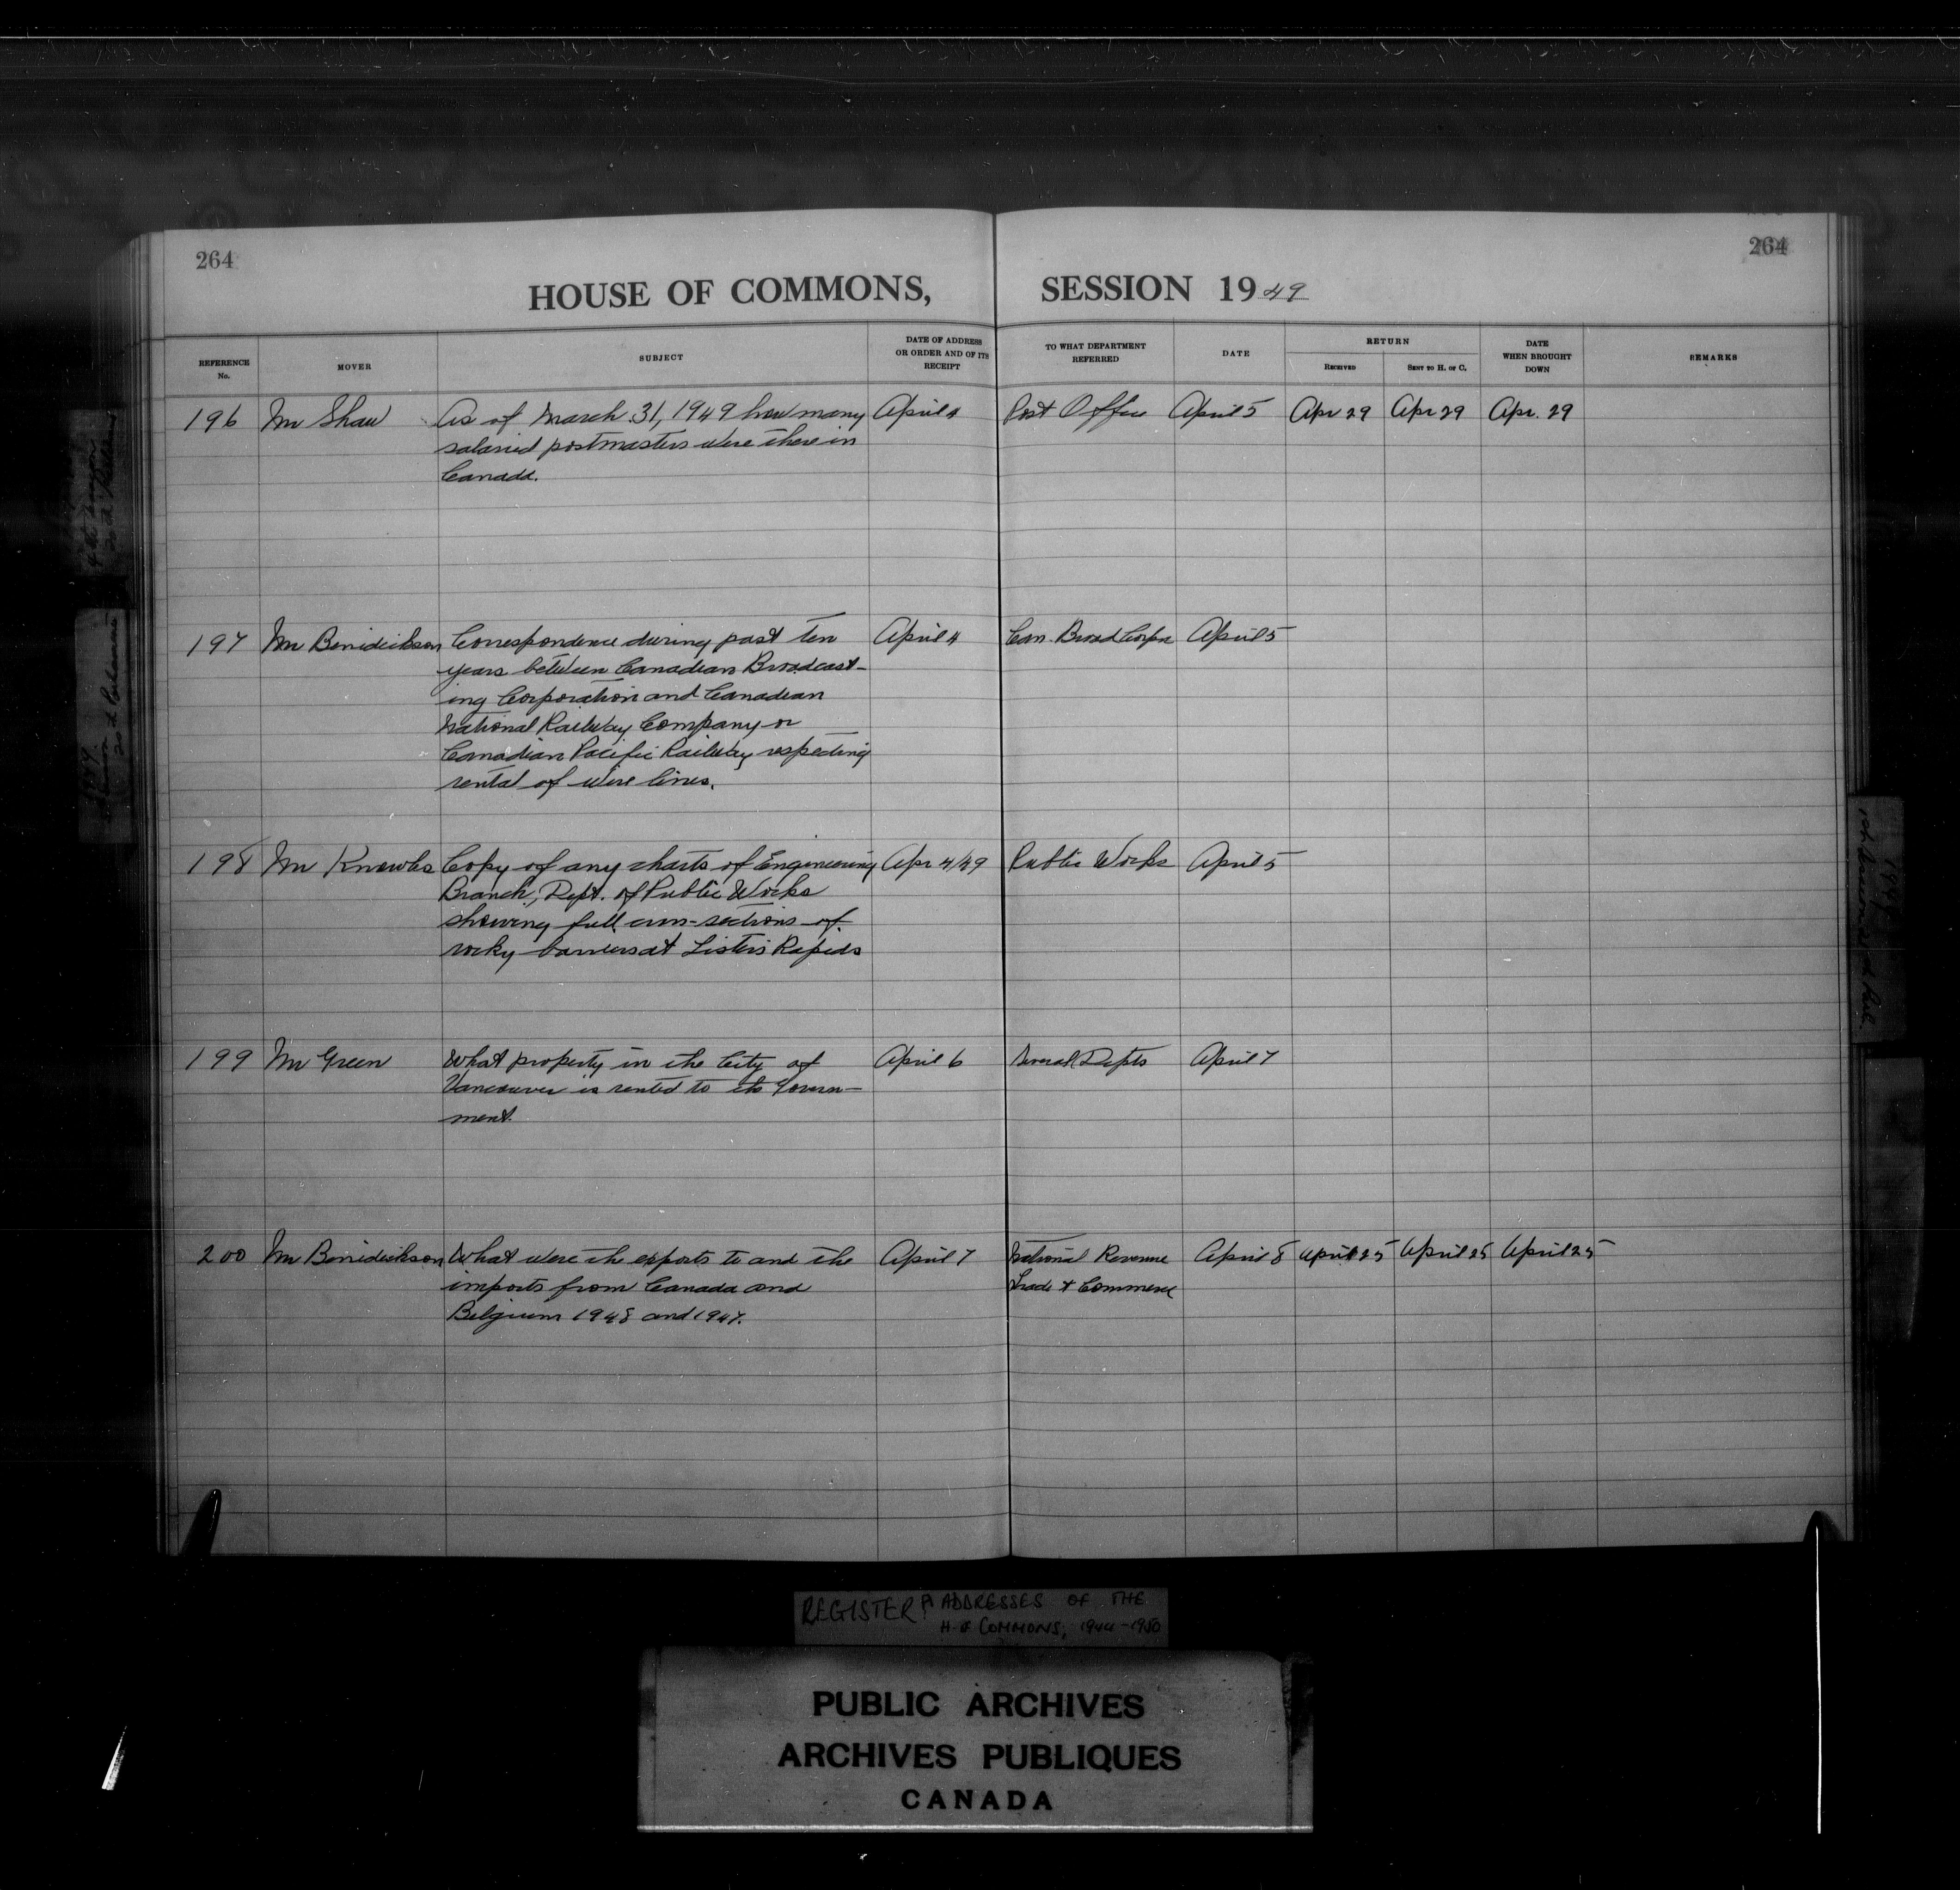 264
264
HOUSE OF COMMONS, SESSION 1949
REFERENCE No. MOVER SUBJECT DATE OF ADDRESS OR ORDER AND OF ITS RECEIPT TO WHAT DEPARTMENT REFERRED DATE RETURN RECEIVED SENT TO H. OF C. DATE WHEN BROUGHT DOWN REMARKS
196 Mr Shaw As of March 31, 1949 how many April 4 Post Office April 5 Apr 29 Apr 29 Apr. 29
salaried postmasters were there in
Canada.
197 Mr Benidickson Correspondence during past ten April 4 Can. Broad Corpn April 5
years between Canadian Broadcast-
ing Corporation and Canadian
National Railway Company or
Canadian Pacific Railway respecting
rental of wire lines.
198 Mr Knowles Copy of any charts of Engineering Apr 4/49 Public Works April 5
Branch, Dept. of Public Works
showing full cross-sections of
rocky barriers at Lister's Rapids
199 Mr Green What property in the City of April 6 Several Depts April 7
Vancouver is rented to the Govern-
ment.
200 Mr Benidickson What were the exports to and the April 7 National Revenue April 8 April 25 April 25 April 25
imports from Canada and Trade & Commerce
Belgium 1948 and 1947.
REGISTER ADDRESSES OF THE
H. OF COMMONS, 1944-1950
PUBLIC ARCHIVES
ARCHIVES PUBLIQUES
CANADA